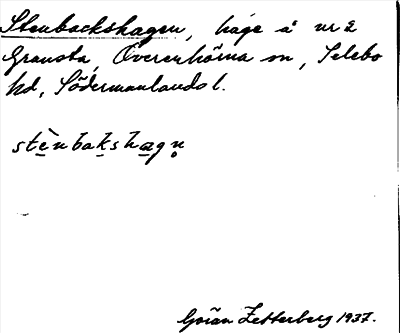 Stenbackshagen, hage å nr 2
Gransta, Överenhörna sn, Selebo
hd, Södermanlands l.
stènbakshagn̥
Göran Zetterberg 1937.